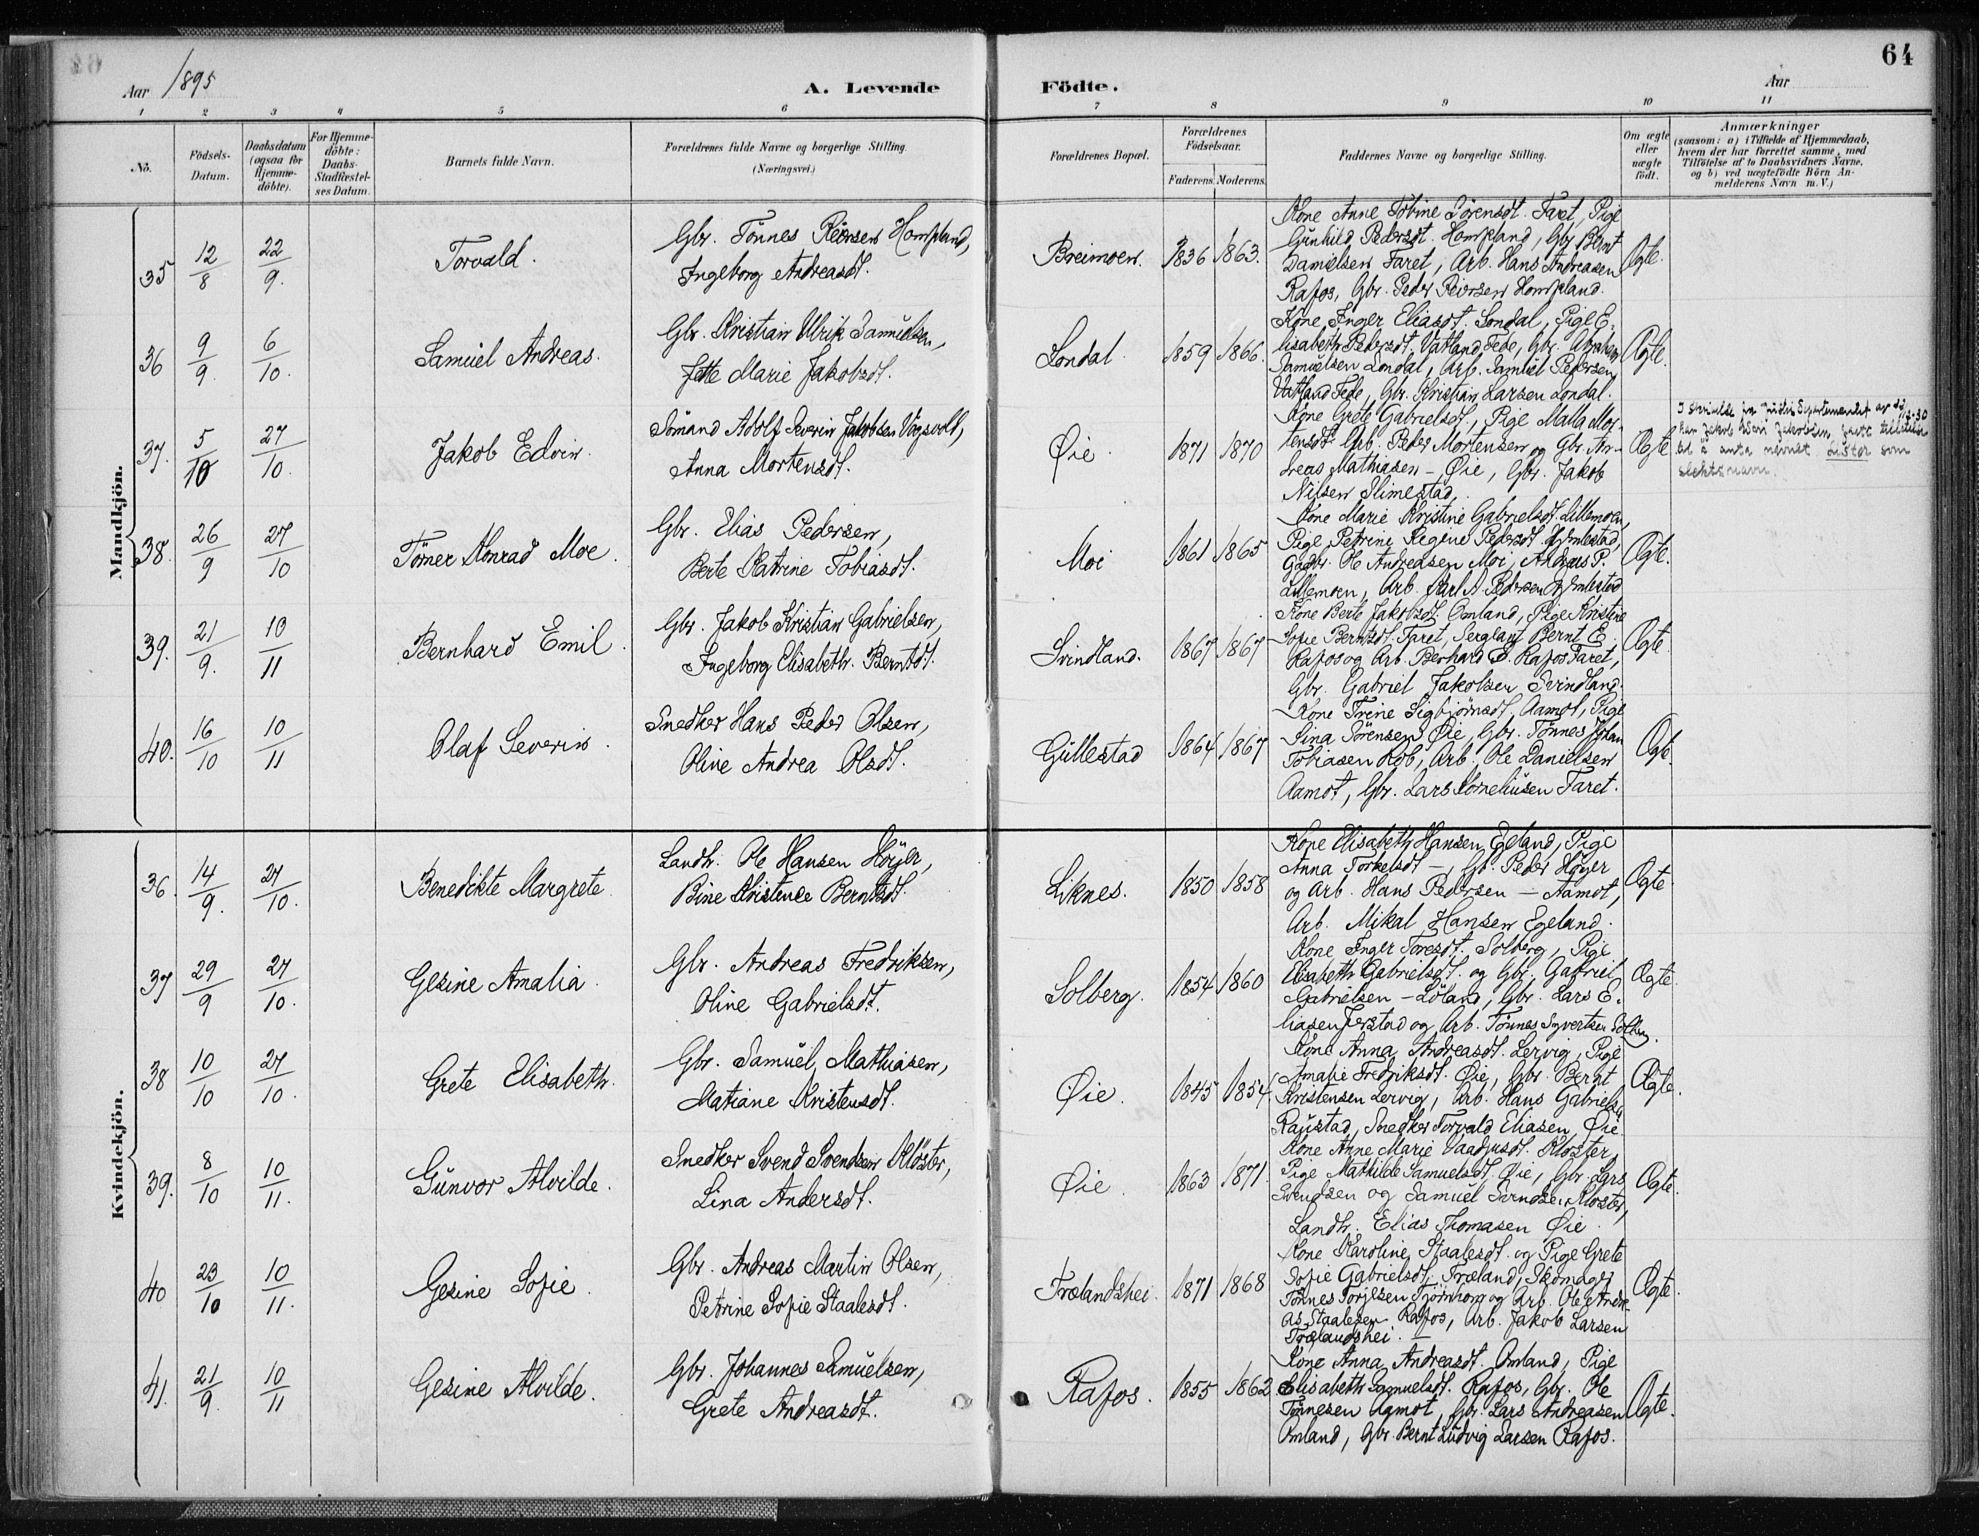 64
Aar 1895
A. Levende Födte.
Aar
1 2 3 4 5 6 7 8 9 10 11
No.
Födsels-Datum.
Daabsdatum (ogsaa for Hjemme-döbte).
For Hjemme-döbte: Daabs-Stadfæstel-ses Datum.
Barnets fulde Navn.
Forældrenes fulde Navne og borgerlige Stilling. (Næringsvei.)
Forældrenes Bopæl.
Forældrenes Födselsaar.
Faderens. Moderens.
Faddernes Navne og borgerlige Stilling.
Om ægte eller uægte födt.
Anmærkninger
(saasom: a) i Tilfælde af Hjemmedaab,
hvem der har forrettet samme, med
Tilföielse af to Daabsvidners Navne,
og b) ved uægtefödte Börn An-
melderens Navn m. V.)
Mandkjön.
35 12/8 22/9. Torvald.
Gbr. Tönnes Hompland,
Ingeborg Andreasdt.
Breimoen. 1836 1863.
Kone Anne Tobine Sörensdt. Faret, Pige
Gunhild Pedersdt. Hompland, Gbr. Bernt
Danielsen Faret, Arb. Hans Andreasen
Rafos, Gbr. Peder Hompland.
Ægte.
36 9/9. 6/10. Samuel Andreas.
Gbr. Kristian Ulrik Samuelsen,
Jette Marie Jakobsdt.
Londal. 1859 1866.
Kone Inger Eliasdt. Londal, Pige E-
lisabeth Pedersdt. Vatland, Fede, Gbr. Abraham
Samuelsen Londal, Arb. Samuel Pedersen
Vatland Fede, Gbr. Kristian Larsen Londal.
Ægte.
37. 5/10 27/10. Jakob Edvin.
Sömand Adolf Severin Jakobsen Vågsvoll,
Anna Mortensdt.
Øie. 1871 1870
Kone Grete Gabrielsdt., Pige Malla Mor-
tensdt. Gbr. Peder Mortensen og Gbr. An-
dreas Mathiasen - Øie, Gbr. Jakob
Nilsen Slimestad.
Ægte
I skrivelse fra Justis Departementet av
har Jakob Edvin Jakobsen fått tillatelse
til å anta navnet Lister som
slektsnavn.
38. 26/9 27/10 Tomer Konrad Moe.
Gbr. Elias Pedersen,
Berte Katrine Tobiasdt.
Moi 1861 1865
Kone Marie Kristine Gabrielsdt. Lillemoen,
Pige Petrine Regine Pedersdt.
Gbr. Ole Andreasen Moi, Andreas P.
Lillemoen, Arb. Karl A. Pedersen
Ægte.
39. 21/9. 10/11 Bernhard Emil.
Gbr. Jakob Kristian Gabrielsen,
Ingeborg Elisabeth Berntsdt.
Svindland. 1867 1867
Kone Berte Jakobsdt. Omland, Pige Kristine
Sofie Berntsdt. Faret, Sergeant Bernt E.
Rafos og Arb. Berhard E. Rafos Faret,
Gbr. Gabriel Jakobsen Svindland.
Ægte.
40. 16/10 10/11 Olaf Severin.
Snedker Hans Peder Olsen,
Oline Andrea Olsdt.
Gullestad 1864 1867
Kone Trine Sigbjørnsdt. Aamot, Pige
Sina Sörensen Øie, Gbr. Tönnes Johan
Tobiasen Rob, Arb. Ole Danielsen
Aamot, Gbr. Lars Kornelиusen Faret.
Ægte.
Kvindekjön.
36. 14/9. 27/10. Benedikte Margrete.
Landh. Ole Hansen Höyer,
Bine Kristence Berntsdt.
Liknes. 1850 1858
Kone Elisabeth Hansen Egeland, Pige
Anna Torkelsdt -, Gb. Peder Höyer
og Arb. Hans Pedersen - Aamot,
Arb. Mikal Hansen Egeland.
Ægte.
37 29/9 27/10. Gesine Amalia.
Gbr. Andreas Fredriksen,
Oline Gabrielsdt.
Solberg. 1854 1860
Kone Inger Toresdt. Solberg, Pige
Elisabeth Gabrielsdt. og Gbr. Gabriel
Gabrielsen - Löland, Gbr. Lars E-
liasen Jerstad og Arb. Tönnes Syvertsen
Ægte.
38 10/10 27/10. Grete Elisabeth.
Gbr. Samuel Mathiasen,
Matiane Kristensdt.
Øie. 1845 1854
Kone Anna Andreasdt. Lervig, Pige
Amalie Fredriksdt. Øie, Gbr. Bernt
Kristensen Lervig, Arb. Hans Gabriels.
Raustad, Snedker Torvald Eliasen Øie
Ægte.
39. 8/10 10/11. Gunvor Alvilde.
Snedker Svend Svendsen Kloster,
Lina Andersdt.
Øie. 1863 1871.
Kone Anne Marie Kloster,
Pige Mathilde Samuelsdt. Øie, Gbr. Lars
Svendsen og Samuel Svendsen Kloster,
Landh. Elias Thomasen Øie.
Ægte.
40 23/10 10/11. Gesine Sofie.
Gbr. Andreas Martin Olsen,
Petrine Sofie Staalesdt.
Trælandshei. 1871 1868
Kone Karoline Staalesdt. og Pige Grete
Sofie Gabrielsdt. Træland, Skomager
Tönnes Torjesen Tjörnhom og Arb. Ole Andre-
as Staalesen Rafos, Arb. Jakob Larsen
Trælandshei.
Ægte.
41. 21/9. 10/11 Gesine Alvilde.
Gbr. Johannes Samuelsen,
Grete Andreasdt.
Rafos. 1855 1862
Kone Anna Andreasdt. Omland, Pige
Elisabeth Samuelsdt. Rafos, Gbr. Ole
Tönnesen Aamot, Gbr. Lars Andreasen
Omland, Gbr. Bernt Ludvig Larsen Rafos.
Ægte.